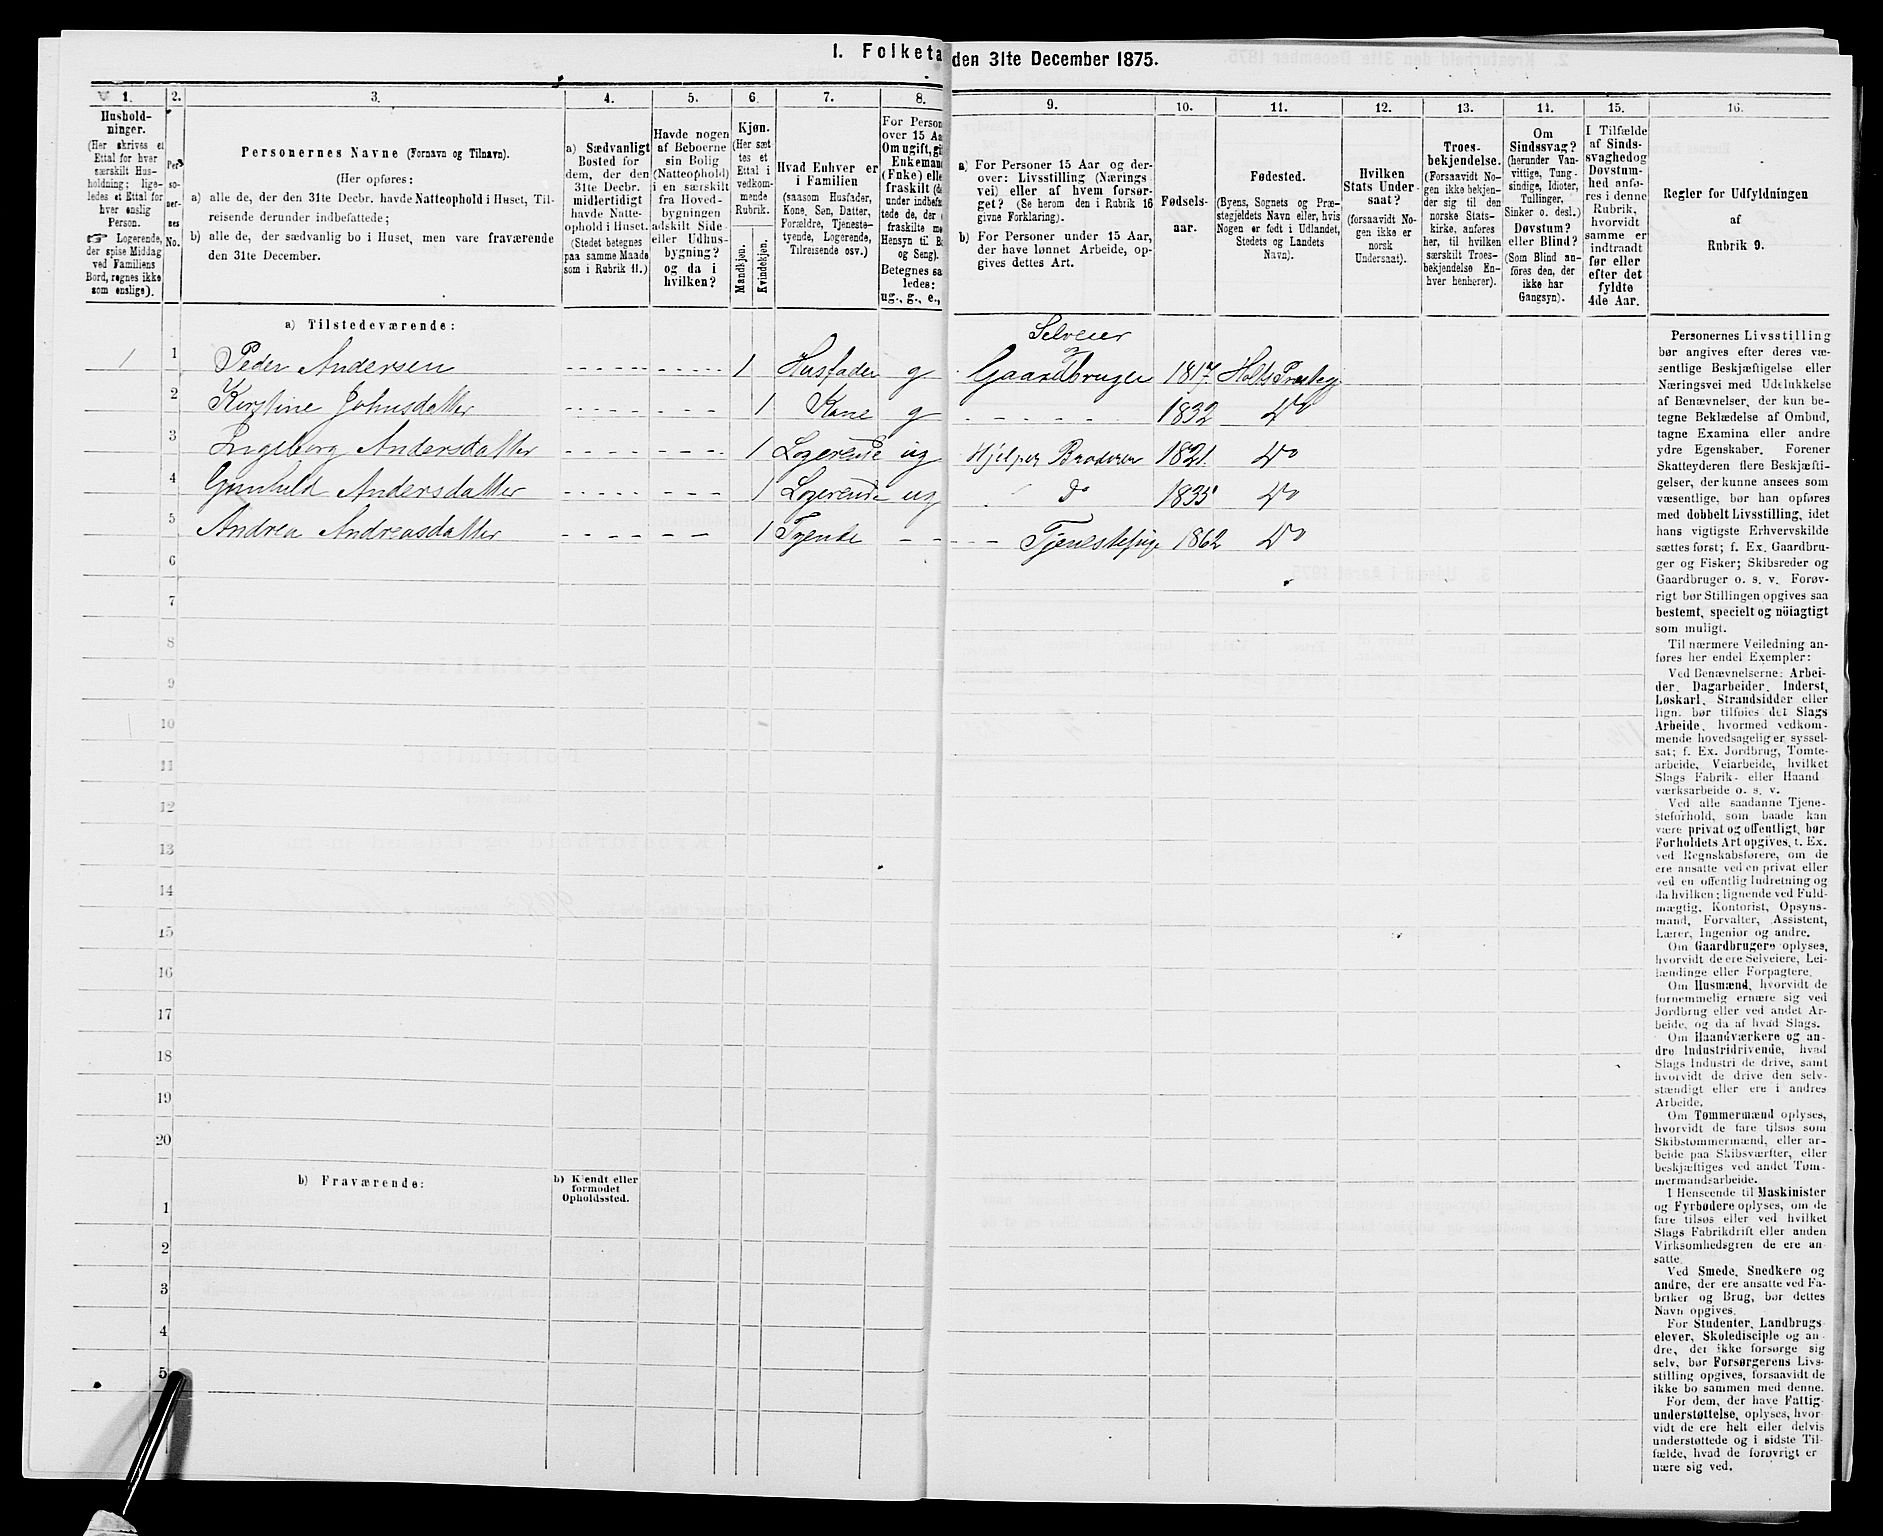 I. Folketæ
den 31te December 1875.
1. 2. 3. 4. 5. 6. 7. 8. 9. 10. 11. 12. 13. 14. 15. 16.
Hushold-
ninger.
(Her skrives et
Ettal for hver
særskilt Hus-
holdning; lige-
ledes et Ettal for
hver enslig
Person.
☞ Logerende,
der spise Middag
ved Familiens
Bord, regnes ikke
som enslige).
Per-
so-
ner-
nes
No.
Personernes Navne (Fornavn og Tilnavn).
(Her opføres:
a) alle de, der den 31te Decbr. havde Natteophold i Huset, Til-
reisende derunder indbefattede;
b) alle de, der sædvanlig bo i Huset, men vare fraværende
den 31te December.
a) Sædvanligt
Bosted for
dem, der den
31te Decbr.
midlertidigt
havde Natte-
ophold i Huset.
(Stedet betegnes
paa samme Maade
som i Rubrik 11.)
Havde nogen
af Beboerne
sin Bolig
(Natteophold)
i en særskilt
fra Hoved-
bygningen
adskilt Side-
eller Udhus-
bygning?
og da i
hvilken?
Kjøn.
(Her sæt-
tes et
Ettal i
vedkom-
mende
Rubrik.
Mandkjøn.
Kvindekjøn.
Hvad Enhver er
i Familien
(saasom Husfader,
Kone, Søn, Datter,
Forældre, Tjeneste-
tyende, Logerende,
Tilreisende osv.).
For Person
over 15 Aa
Om ugift, gi
Enkemand
(Enke) elle
fraskilt (de
under indbefa
tede de, der e
fraskilte me
Hensyn til Bo
og Seng).
Betegnes saa
ledes:
ug., g., e.,
a) For Personer 15 Aar og der-
over: Livsstilling (Nærings-
vei) eller af hvem forsør-
get? (Se herom den i Rubrik 16
givne Forklaring).
b) For Personer under 15 Aar,
der have lønnet Arbeide, op-
gives dettes Art.
Fødsels-
aar.
Fødested.
(Byens, Sognets og Præ-
stegjeldets Navn eller, hvis
Nogen er født i Udlandet,
Stedets og Landets
Navn).
Hvilken
Stats Under-
saat?
(forsaavidt No-
gen ikke er
norsk
Undersaat).
Troes-
bekjendelse.
(Forsaavidt No-
gen ikke bekjen-
der sig til den
norske Stats-
kirke, anføres
her, til hvilken
særskilt Troes-
bekjendelse En-
hver henhører).
Om
Sindssvag?
(herunder Van-
vittige, Tung-
sindige, Idioter,
Tullinger,
Sinker o. desl.)
Døvstum?
eller Blind?
(Som Blind an-
føres den, der
ikke har
Gangsyn).
I Tilfælde
af Sinds-
svaghed og
Døvstum-
hed anfø-
res i denne
Rubrik,
hvorvidt
samme er
indtraadt
før eller
efter det
fyldte
4de Aar.
Regler for Udfyldningen
af
Rubrik 9.
a) Tilstedeværende:
Selveier
1 1 Peder Andersen 1 Husfader g og Gaardbruger 1817 Holts Præstegj
2 Kirstine Johnsdatter 1 Kone g 1832 Do
3 Ingeborg Andersdatter 1 Logerende ug Hjelper Broderen 1821. Do
4 Gunhild Andersdatter 1 Logerende ug do 1835 Do
5 Andrea Andreasdatter 1 Tyende Tjenestepige 1862 Do
6
7
8
9
10
11
12
13
14
15
16
17
18
19
20
b) Fraværende:
b) Kjendt eller
formodet
Opholdssted.
1
2
3
4
5
Personernes Livsstilling
bør angives efter deres væ-
sentlige Beskjæftigelse eller
Næringsvei med Udelukkelse
af Benævnelser, der kun be-
tegne Beklædelse af Ombud,
tagne Examina eller andre
ydre Egenskaber. Forener
Skatteyderen flere Beskjæfti-
gelser, der kunne ansees som
væsentlige, bør han opføres
med dobbelt Livsstilling, idet
hans vigtigste Erhvervskilde
sættes først; f. Ex. Gaardbru-
ger og Fisker; Skibsreder og
Gaardbruger o. s. v. Forøv-
rigt bør Stillingen opgives saa
bestemt, specielt og nöiagtigt
som muligt.
Til nærmere Veiledning an-
føres her endel Exempler:
Ved Benævnelserne: Arbei-
der, Dagarbeider, Inderst,
Løskarl, Strandsidder eller
lign. bør tilføies det Slags
Arbeide, hvormed vedkom-
mende hovedsagelig er syssel-
sat; f. Ex. Jordbrug, Tomte-
arbeide, Veiarbeide, hvilket
Slags Fabrik- eller Haand
værksarbeide o. s. v.
Ved alle saadanne Tjene-
steforhold, som baade kan
være privat og offentligt, bør
Forholdets Art opgives, t. Ex.
ved Regnskabsførere, om de
ere ansatte ved en privat eller
ved en offentlig Indretning og
da hvilken; lignende ved Fuld-
mægtig, Kontorist, Opsyns-
mand, Forvalter, Assistent,
Lærer, Ingeniør og andre.
Om Gaardbrugere oplyses,
hvorvidt de ere Selveiere, Lei-
lændinge eller Forpagtere.
Om Husmænd, hvorvidt de
fornemmelig ernære sig ved
Jordbrug eller ved andet Ar-
beide, og da af hvad Slags.
Om Haandværkere og an-
dre Industridrivende, hvad
Slags Industri de drive, samt
hvorvidt de drive den selv-
stændigt eller ere i andres
Arbeide.
Om Tømmermænd oplyses,
hvorvidt de fare tilsøs som
Skibstømmermænd, eller ar-
beide paa Skibsværfter, eller
beskjæftiges ved andet Tøm-
mermandsarbeide.
I Henseende til Maskinister
og Fyrbødere oplyses, om de
fare tilsøs eller ved hvilket
Slags Fabrikdrift eller anden
Virksomhedsgren de ere an-
satte.
Ved Smede, Snedkere og
andre, der ere ansatte ved Fa-
briker og Brug, bør dettes
Navn opgives.
For Studenter, Landbrugs-
elever, Skoledisciple og an-
dre, det ikke forsørge sig
selv, bør Forsørgerens Livs-
stilling opgives, forsaavidt de
ikke bo sammen med denne.
For dem, der have Fattig-
understøttelse, oplyses, hvor-
vidt de ere helt eller delvis
understøttede og i sidste Til-
fælde, hvad de forøvrigt er
nære sig ved.